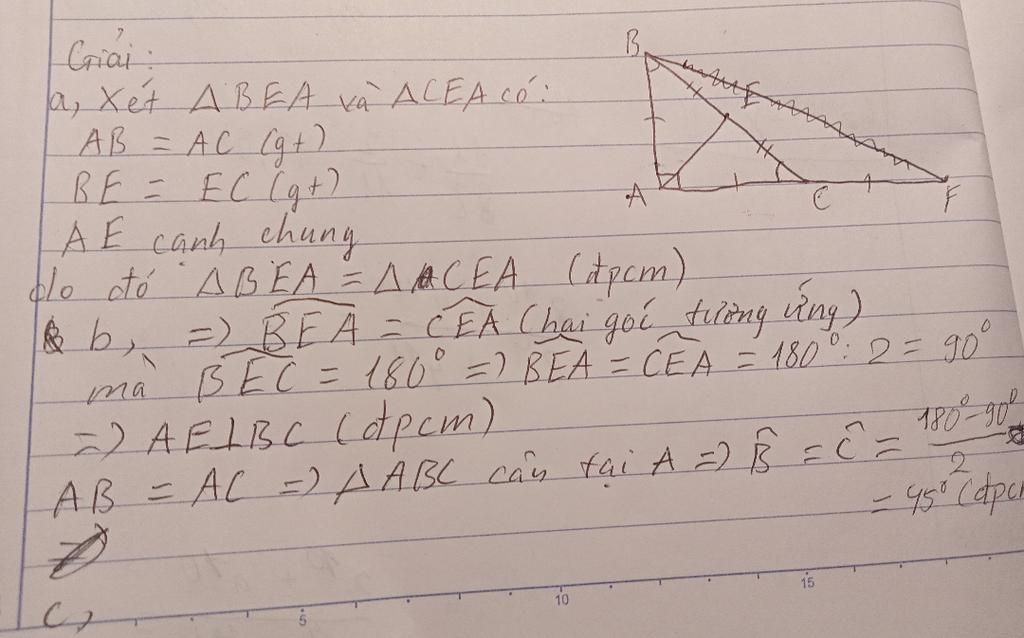 Giải:
a, Xét ΔBEA và ΔCEA có:
AB = AC (gt)
BE = EC (gt)
AE cạnh chung
do đó ΔBEA = ΔCEA (đpcm)
b, => BEA = CEA (hai goć tương ứng)
mà BEC = 180° => BEA = CEA = 180° : 2 = 90°
=> AE⊥BC (đpcm)
AB = AC => ΔABC cân tại A => B̂ = Ĉ = (180° - 90°)/2
= 45° (đpcm
c,
B
E
A
C
F
5
10
15